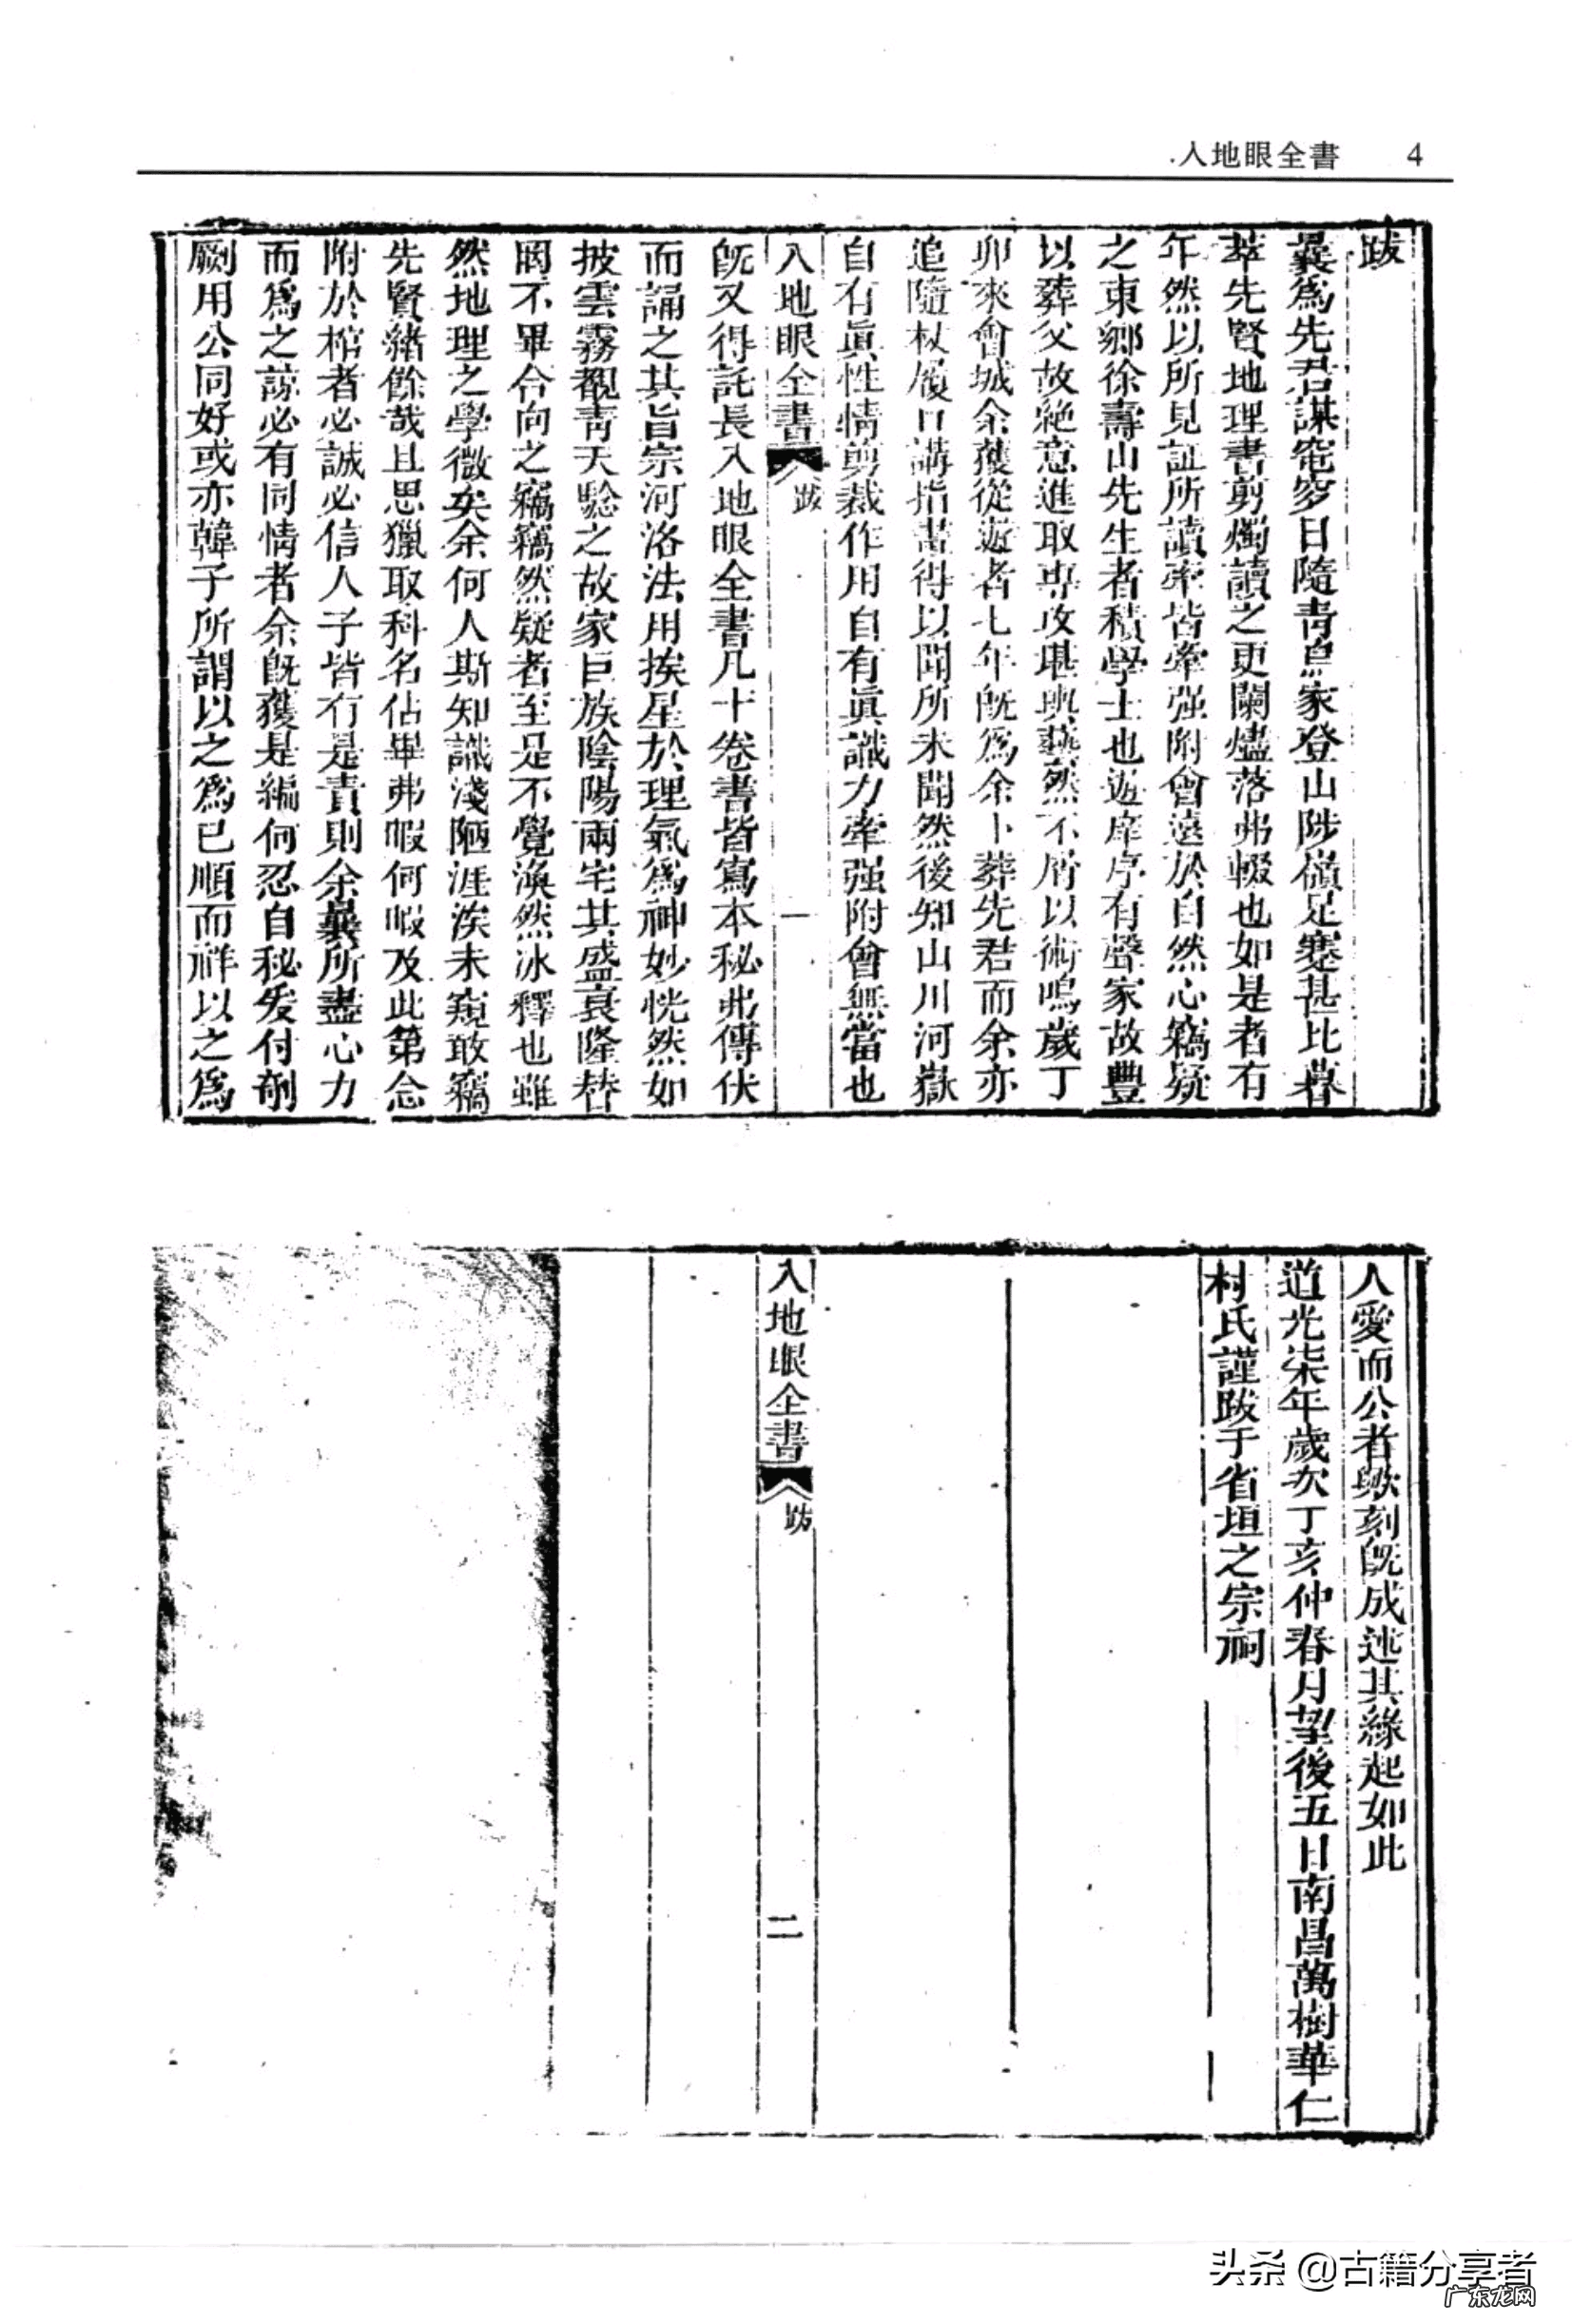 入地眼全書 4
跋
曩爲先君謀窀穸日隨青烏家登山陟嶺足蹇甚比暮
萃先賢地理書剪燭讀之更闌燼落弗輟也如是者有
年然以所見証所讀率皆牽强附會遠於自然心竊疑
之東鄉徐壽山先生者積學士也遊庠序有聲家故豐
以葬父故絶意進取専攻堪輿藝然不屑以術鳴歲丁
卯來會城余獲從遊者七年旣爲余卜葬先君而余亦
追隨杖履口講指畫得以聞所未聞然後知山川河嶽
自有眞性情剪裁作用自有眞識力牽强附會無當也
入地眼全書 跋 一
旣又得託長入地眼全書凡十卷書皆寫本秘弗傳伏
而誦之其旨宗河洛法用挨星於理氣爲神妙恍然如
披雲霧覩靑天騐之故家巨族陰陽兩宅其盛衰隆替
罔不畢合向之竊竊然疑者至是不覺渙然冰釋也雖
然地理之學微矣余何人斯知識淺陋涯涘未窺敢竊
先賢緒餘哉且思獵取科名佔畢弗暇何暇及此第念
附於棺者必誠必信人子皆有是責則余曩所盡心力
而爲之諒必有同情者余旣獲是編何忍自秘爰付剞
劂用公同好或亦韓子所謂以之爲已順而祥以之爲
人愛而公者歟刻旣成述其緣起如此
道光柒年歲次丁亥仲春月望後五日南昌萬樹華仁
村氏謹跋于省垣之宗祠
入地眼全書 跋 二
头条 @古籍分享者
广东龙网